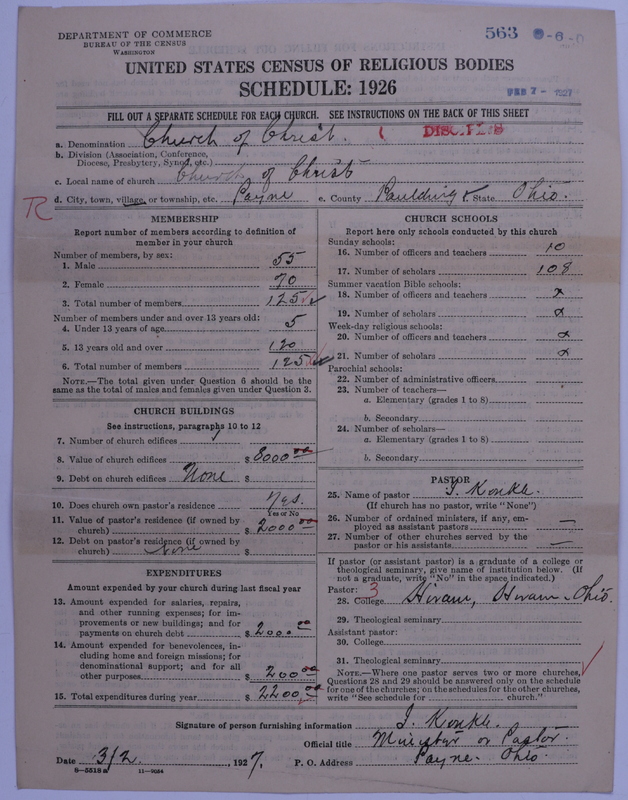 DEPARTMENT OF COMMERCE
BUREAU OF THE CENSUS
WASHINGTON
563
UNITED STATES CENSUS OF RELIGIOUS BODIES
SCHEDULE: 1926
FEB 7 - 1927
FILL OUT A SEPARATE SCHEDULE FOR EACH CHURCH. SEE INSTRUCTIONS ON THE BACK OF THIS SHEET
a. Denomination Church of Christ.
b. Division (Association, Conference,
Diocese, Presbytery, Synod, etc.)
c. Local name of church Church of Christ
R
d. City, town, village, or township, etc. Payne e. County Paulding State Ohio.
MEMBERSHIP
Report number of members according to definition of
member in your church
Number of members, by sex:
1. Male 55
2. Female 70
3. Total number of members 125
Number of members under and over 13 years old:
4. Under 13 years of age 5
5. 13 years old and over 120
6. Total number of members 125
NOTE.—The total given under Question 6 should be the
same as the total of males and females given under Question 3.
CHURCH BUILDINGS
See instructions, paragraphs 10 to 12
7. Number of church edifices 1
8. Value of church edifices $ 8000 00
9. Debt on church edifices None $
10. Does church own pastor's residence Yes.
Yes or No
11. Value of pastor's residence (if owned by
church) $ 2000 00
12. Debt on pastor's residence (if owned by
church) None $
EXPENDITURES
Amount expended by your church during last fiscal year
13. Amount expended for salaries, repairs,
and other running expenses; for im-
provements or new buildings; and for
payments on church debt $ 2000 00
14. Amount expended for benevolences, in-
cluding home and foreign missions; for
denominational support; and for all
other purposes $ 200 00
15. Total expenditures during year $ 2200 00
CHURCH SCHOOLS
Report here only schools conducted by this church
Sunday schools:
16. Number of officers and teachers 10
17. Number of scholars 108
Summer vacation Bible schools:
18. Number of officers and teachers x
19. Number of scholars x
Week-day religious schools:
20. Number of officers and teachers x
21. Number of scholars x
Parochial schools:
22. Number of administrative officers
23. Number of teachers—
a. Elementary (grades 1 to 8)
b. Secondary
24. Number of scholars—
a. Elementary (grades 1 to 8)
b. Secondary
PASTOR
25. Name of pastor I. Konkle.
(If church has no pastor, write "None")
26. Number of ordained ministers, if any, em-
ployed as assistant pastors —
27. Number of other churches served by the
pastor or his assistants —
If pastor (or assistant pastor) is a graduate of a college or
theological seminary, give name of institution below. (If
not a graduate, write "No" in the space indicated.)
Pastor: 3
28. College Hiram, Hiram - Ohio.
29. Theological seminary
Assistant pastor:
30. College
31. Theological seminary
NOTE.—Where one pastor serves two or more churches,
Questions 28 and 29 should be answered only on the schedule
for one of the churches; on the schedules for the other churches,
write "See schedule for church."
Signature of person furnishing information I. Konkle.
Official title Minister or Pastor.
Date 3/2 1927. P. O. Address Payne - Ohio.
8-5518a 11-9054